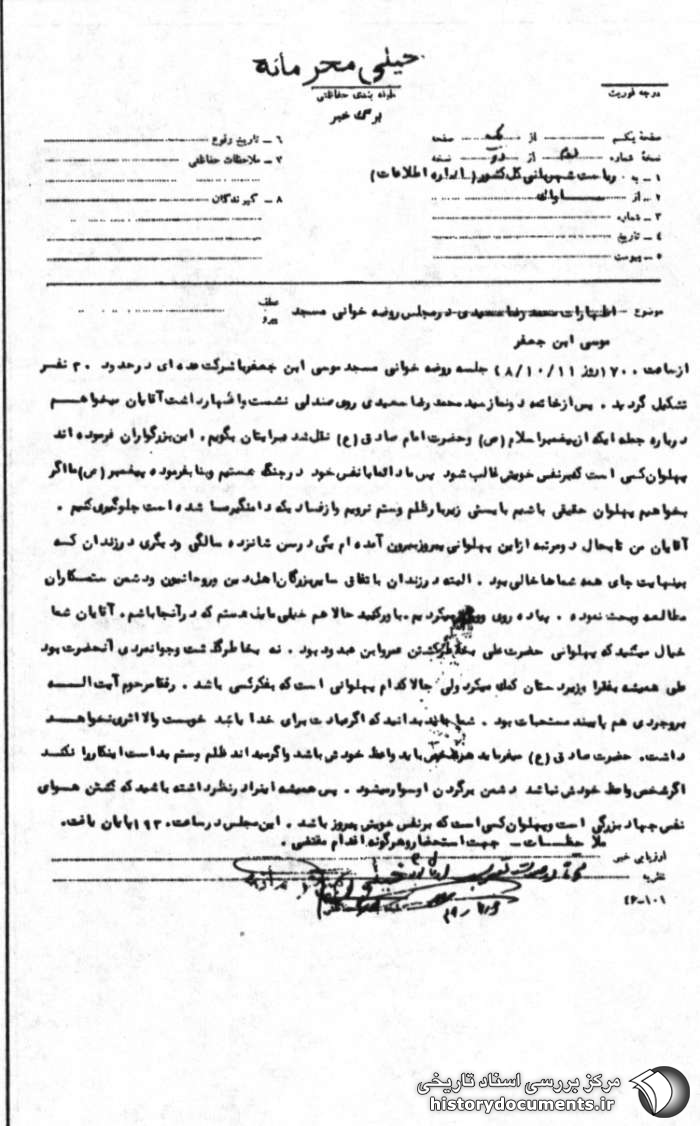 خیلی محرمانه
درجه فوریت
طبقه بندی حفاظتی
برگ خبر
صفحه یکم از یک صفحه
نسخه شماره از دو نسخه
۱ – به ریاست شهربانی کل کشور (اداره اطلاعات)
۲ – از ساواک
۳ – شماره
۴ – تاریخ
۵ – پیوست
۶ – تاریخ وقوع
۷ – ملاحظات حفاظتی
۸ – گیرندگان
موضوع اظهارات محمد رضا سعیدی در مجلس روضه خوانی مسجد
موسی ابن جعفر
عطف
پیرو
از ساعت ۱۷۰۰ روز ۴۸/۱۰/۱۱ جلسه روضه خوانی مسجد موسی ابن جعفر با شرکت عده ای در حدود ۲۰ نفر
تشکیل گردید . پس از خاتمه دو نماز سید محمد رضا سعیدی روی صندلی نشست و اظهار داشت آقایان میخواهم
درباره جمله ایکه از پیغمبر اسلام (ص) و حضرت امام صادق (ع) نقل شد برایتان بگویم . این بزرگواران فرموده اند
پهلوان کسی است که بر نفس خویش غالب شود پس ما دائما با نفس خود در جنگ هستیم و بنا بفرموده پیغمبر (ص) ما اگر
بخواهیم پهلوان حقیقی باشیم بایستی زیر بار ظلم و ستم نرویم و از فسادیکه دامنگیر ما شده است جلوگیری کنیم .
آقایان من تا بحال دو مرتبه از این پهلوانی پیروز بیرون آمده ام یکی در سن شانزده سالگی و دیگری در زندان که
بینهایت جای همه شماها خالی بود . البته در زندان با تفاق سایر بزرگان اهل دین و روحانیون و دشمن ستمکاران
مطالعه و بحث نموده . پیاده روی میکردیم . باور کنید حالا هم خیلی مایل هستم که در آنجا باشم . آقایان شما
خیال میکنید که پهلوانی حضرت علی بخاطر کشتن عمرو ابن عبدود بود . نه بخاطر گذشت و جوانمردی آنحضرت بود
علی همیشه بفقرا و زیردستان کمک میکرد ولی حالا کدام پهلوانی است که بفکر کسی باشد . رفقا مرحوم آیت اله
بروجردی هم پابند مستحبات بود . شما باید بدانید که اگر عبادت برای خدا باشد خوبست والا اثری نخواهد
داشت . حضرت صادق (ع) میفرماید هر شخص باید واعظ خودش باشد و اگر میداند ظلم و ستم بد است اینکار را نکند
اگر شخص واعظ خودش نباشد دشمن برگردن او سوار میشود . پس همیشه اینرا در نظر داشته باشید که کشتن هوای
نفس جهاد بزرگی است و پهلوان کسی است که بر نفس خویش پیروز باشد . این مجلس در ساعت ۱۹۳۰ پایان یافت .
ملاحظات – جهت استحضار و هرگونه اقدام مقتضی .
ارزیابی خبر
نظریه
۴۶-۱۰۱
مرکز بررسی اسناد تاریخی
historydocuments.ir